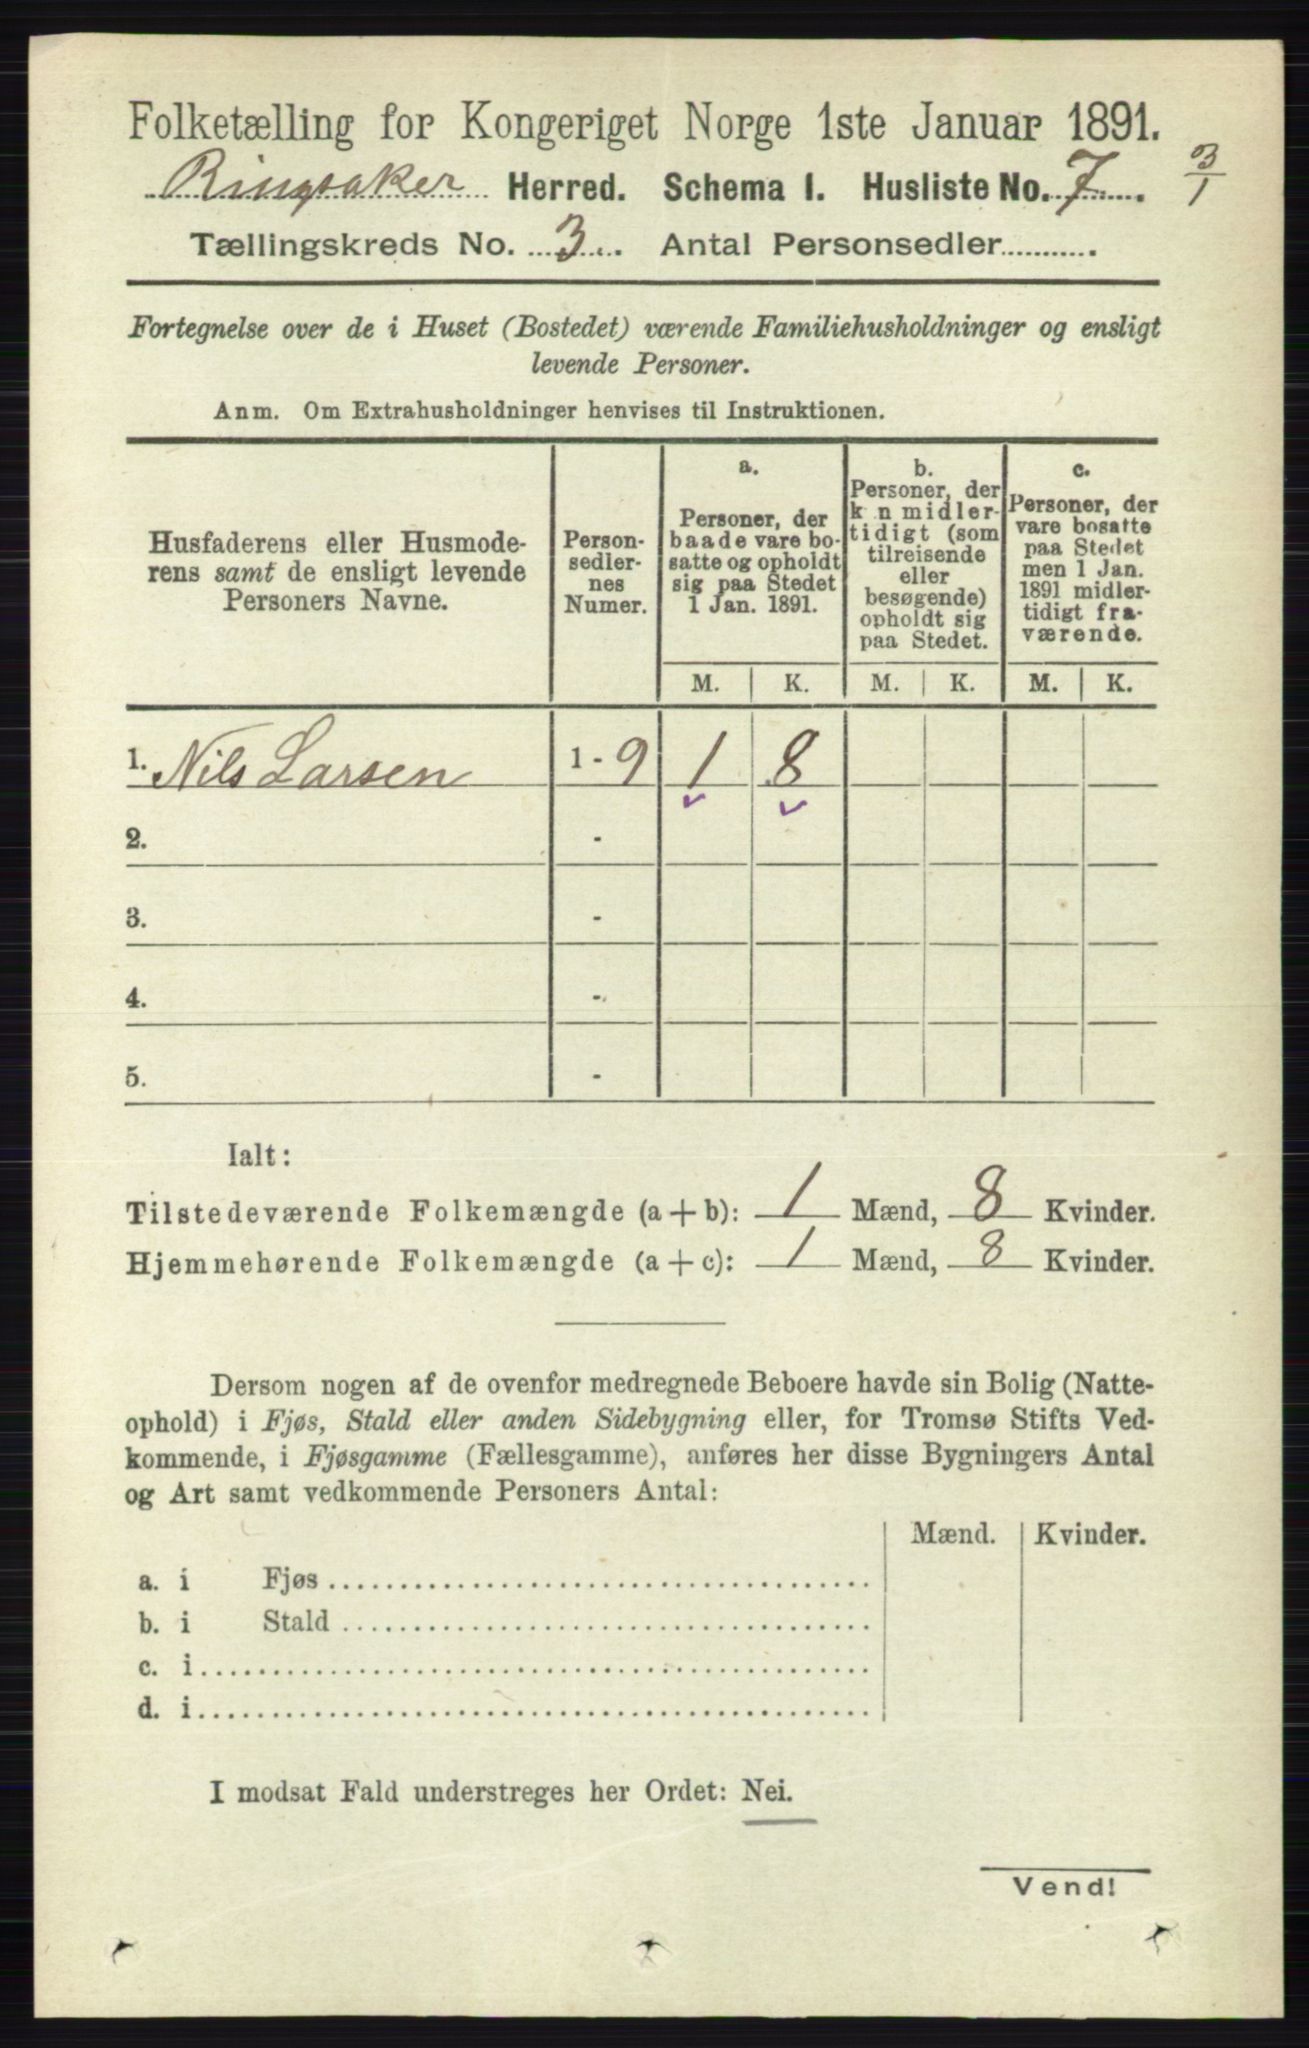 Folketælling for Kongeriget Norge 1ste Januar 1891.
Ringsaker Herred. Schema I. Husliste No. 7 3/1
Tællingskreds No. 3. Antal Personsedler
Fortegnelse over de i Huset (Bostedet) værende Familiehusholdninger og ensligt
levende Personer.
Anm. Om Extrahusholdninger henvises til Instruktionen.
Husfaderens eller Husmode-
rens samt de ensligt levende
Personers Navne.
Person-
sedler-
nes
Numer.
a.
Personer, der
baade vare bo-
satte og opholdt
sig paa Stedet
1 Jan. 1891.
b.
Personer, der
k n midler-
tidigt (som
tilreisende
eller
besøgende)
opholdt sig
paa Stedet.
c.
Personer, der
vare bosatte
paa Stedet
men 1 Jan.
1891 midler-
tidigt fra-
værende.
M. K. M. K. M. K.
1. Nils Larsen 1 - 9 1 8
2. -
3. -
4. -
5. -
Ialt:
Tilstedeværende Folkemængde (a + b): 1 Mænd, 8 Kvinder.
Hjemmehørende Folkemængde (a + c): 1 Mænd, 8 Kvinder.
Dersom nogen af de ovenfor medregnede Beboere havde sin Bolig (Natte-
ophold) i Fjøs, Stald eller anden Sidebygning eller, for Tromsø Stifts Ved-
kommende, i Fjøsgamme (Fællesgamme), anføres her disse Bygningers Antal
og Art samt vedkommende Personers Antal:
Mænd. Kvinder.
a. i Fjøs
b. i Stald
c. i
d. i
I modsat Fald understreges her Ordet: Nei.
Vend!